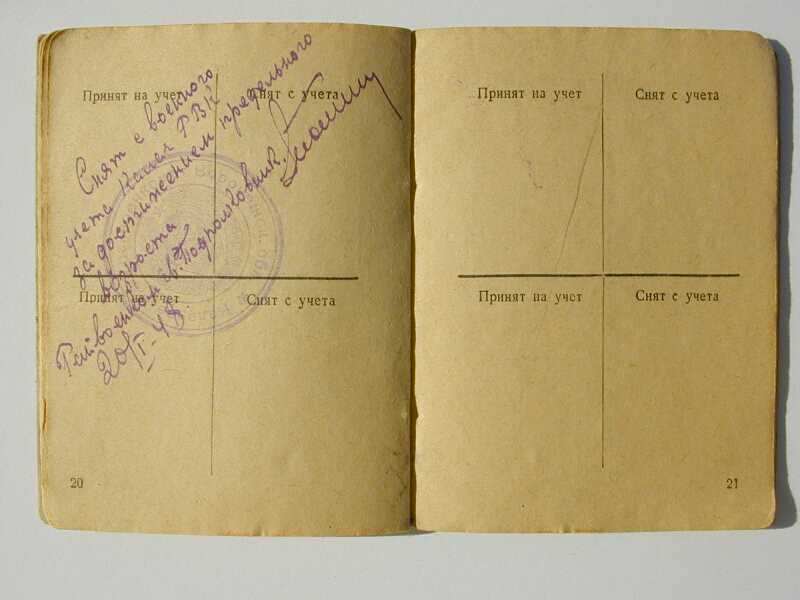 Принят на учет
Снят с учета
Снят с военного
учета РВК
за достижением предельного
возроста
Райвоенком подполковник
20/I-48
Принят на учет
Снят с учета
20
Принят на учет
Снят с учета
Принят на учет
Снят с учета
21